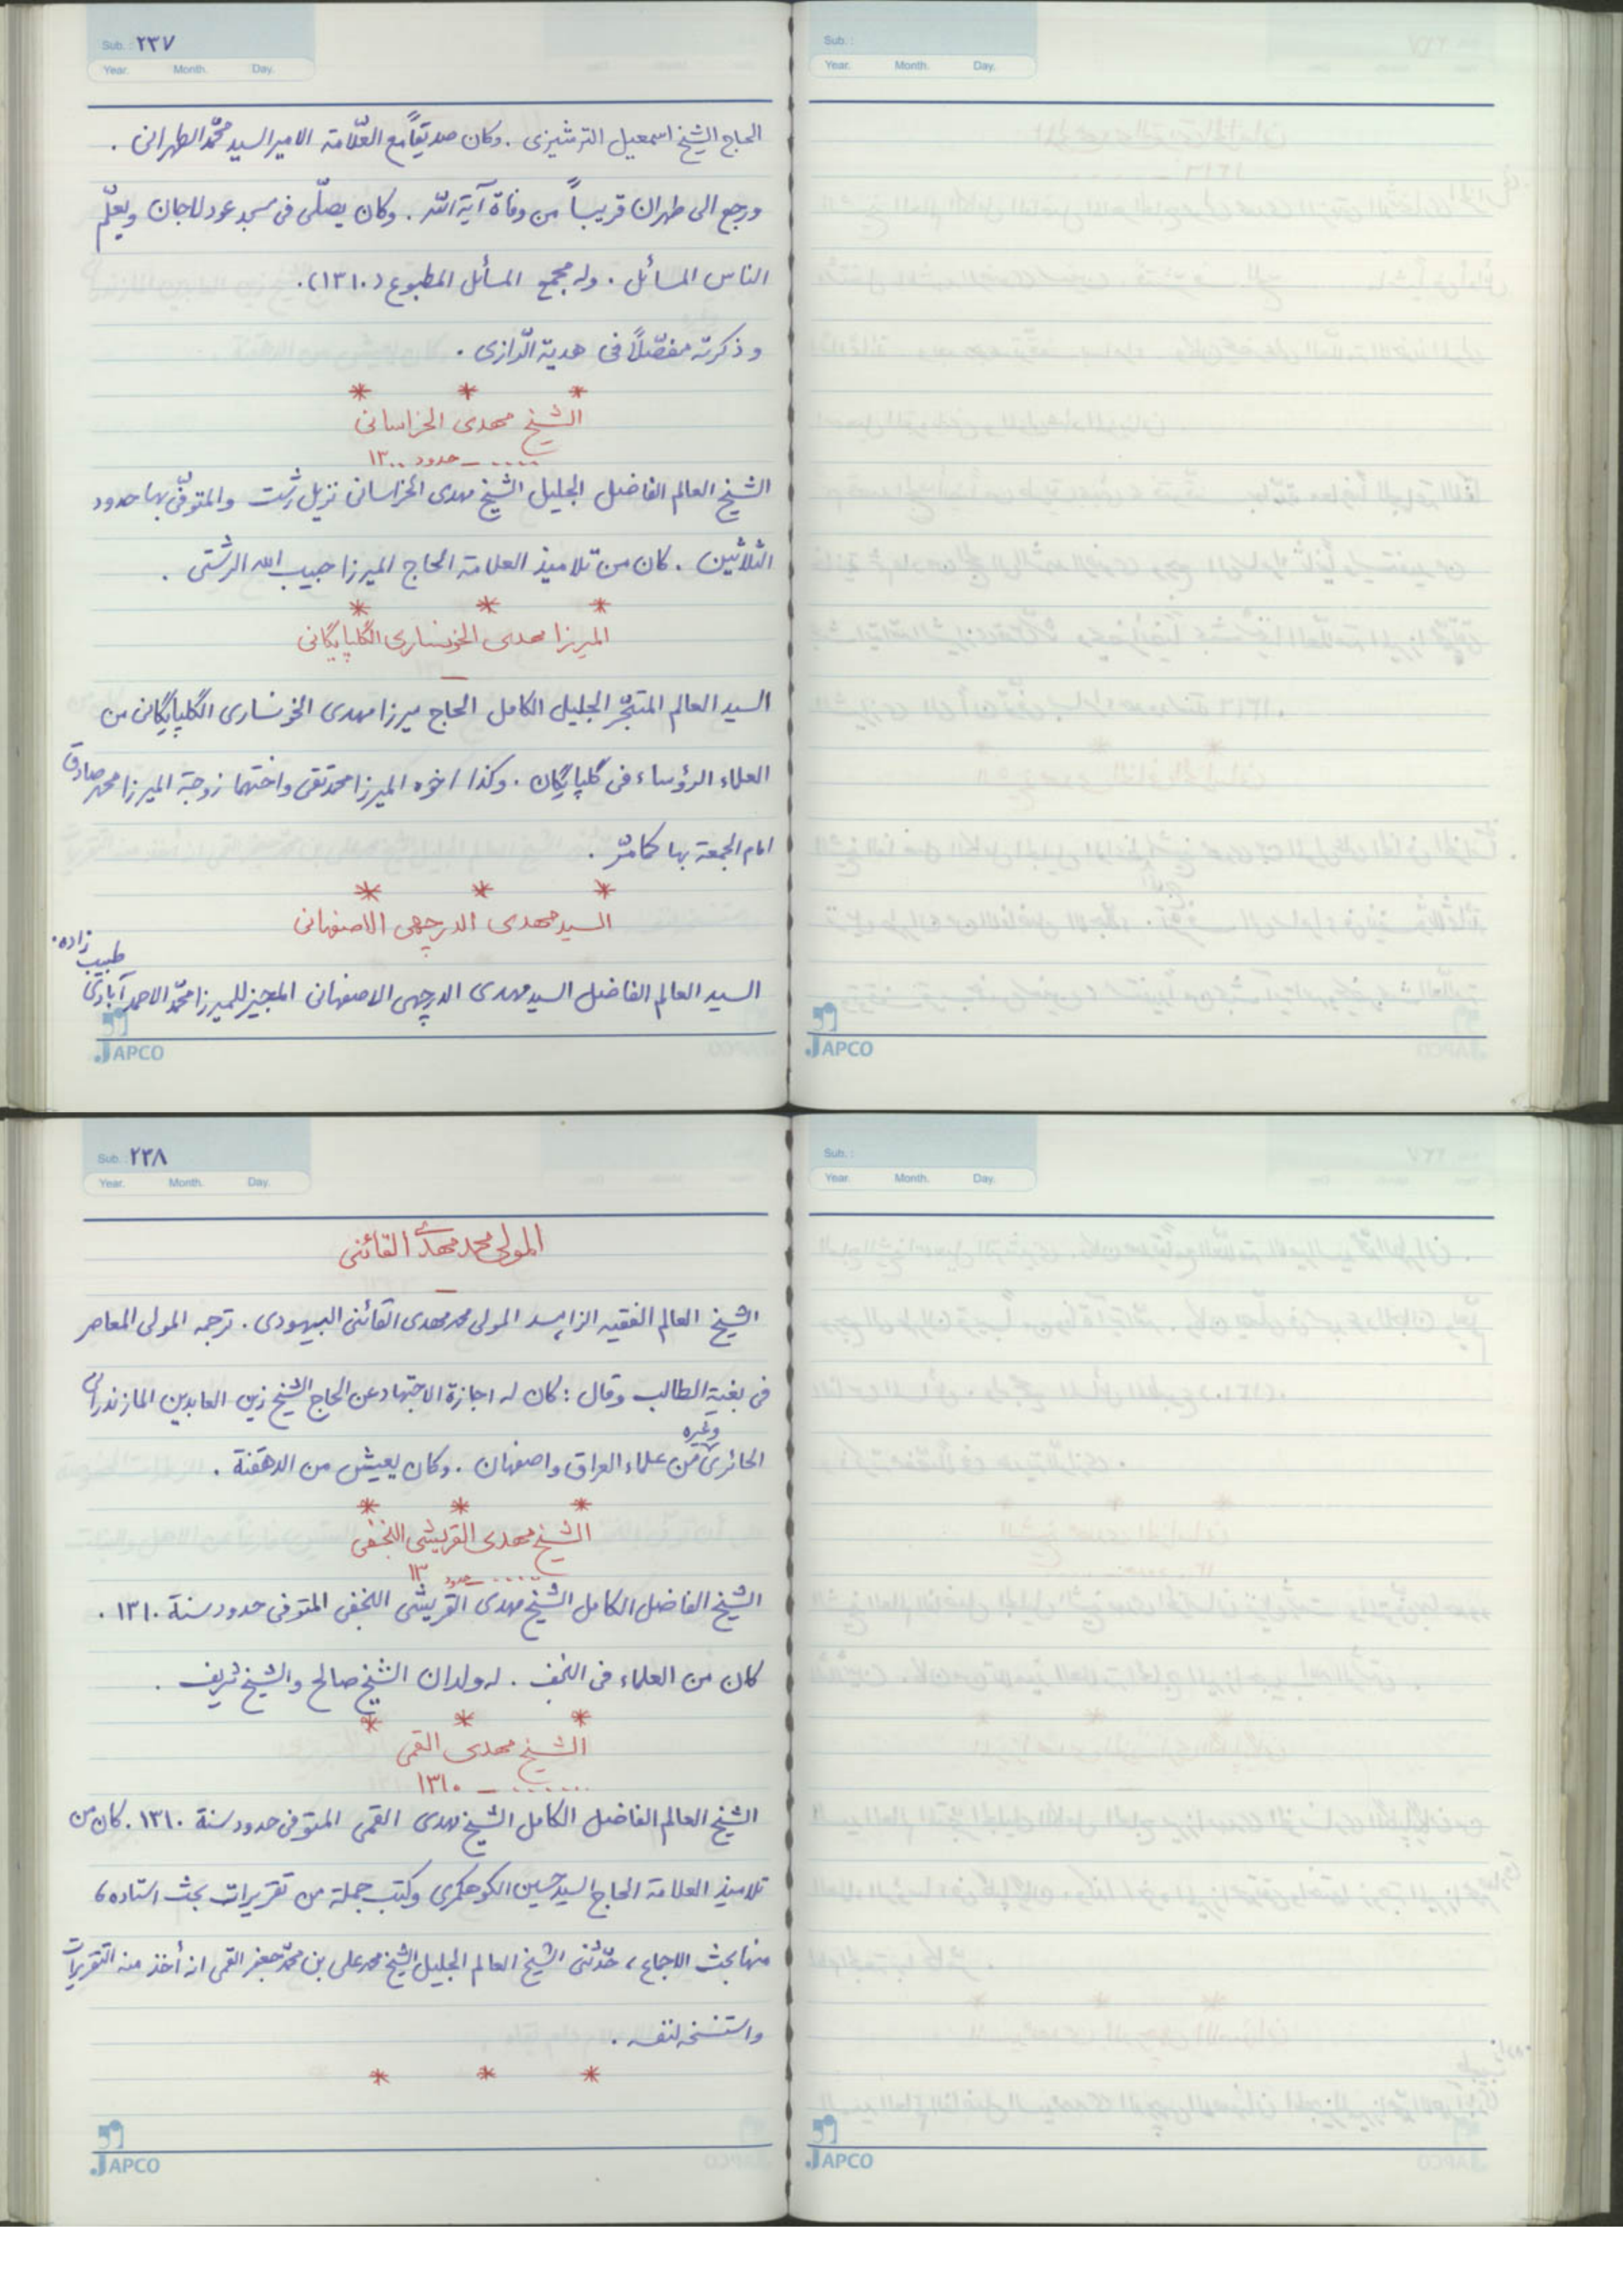 Sub.: ٢٣٧
Year. Month. Day.
الحاج الشيخ اسمعيل الترشيزى . وكان صديقاً مع العلّامة الامير السيد محمّد الطهرانى .
ورجع الى طهران قريباً من وفاة آية اللّه . وكان يصلّى فى مسجد عودلاجان ويعلّم
الناس المسائل . وله مجمع المسأئل المطبوع (١٣١٠) .
وذكرته مفصّلاً فى هدية الرّازى .
* * *
الشيخ مهدى الخراسانى
..... ـ حدود ١٣٠٠
الشيخ العالم الفاضل الجليل الشيخ مهدى الخراسانى نزيل رشت والمتوفّى بها حدود
الثلاثين . كان من تلاميذ العلامة الحاج الميرزا حبيب الله الرشتى .
* * *
الميرزا مهدى الخونسارى الگلپايگانى
ـ
السيد العالم المتبحّر الجليل الكامل الحاج ميرزا مهدى الخونسارى الگلپايگانى من
العلماء الرؤساء فى گلپايگان . وكذا اخوه الميرزا محمد تقى واختهما زوجة الميرزا محمد صادق
امام الجمعة بها كما مرّ .
* * *
السيد مهدى الدرچهى الاصفهانى
السيد العالم الفاضل السيد مهدى الدرچهى الاصفهانى المجيز للميرزا محمّد الاحمد آبادى
طبيب زاده .
JAPCO
Sub.:
Year. Month. Day.
JAPCO
Sub.: ٢٣٨
Year. Month. Day.
المولى محمد مهدى القائنى
ـ
الشيخ العالم الفقيه الزاهد المولى محمد مهدى القائنى البيهودى . ترجمه المولى المعاصر
فى بغية الطالب وقال : كان له اجازة الاجتهاد عن الحاج الشيخ زين العابدين المازندرانى
الحائرى وغيره من علماء العراق واصفهان . وكان يعيش من الدهقنة .
* * *
الشيخ مهدى القريشى النجفى
..... ـ حدود ١٣
الشيخ الفاضل الكامل الشيخ مهدى القريشى النجفى المتوفى حدود سنة ١٣١٠ .
كان من العلماء فى النجف . له ولدان الشيخ صالح والشيخ شريف .
* * *
الشيخ مهدى القمى
....... ـ ١٣١٠
الشيخ العالم الفاضل الكامل الشيخ مهدى القمى المتوفى حدود سنة ١٣١٠ . كان من
تلاميذ العلامة الحاج السيد حسين الكوهكمرى وكتب جملة من تقريرات بحث استاده ،
منها بحث الاجماع ، حدّثنى الشيخ العالم الجليل الشيخ محمد على بن محمّد جعفر القمى انه أخذ منه التقريرات
واستنسخه لنفسه .
* * *
JAPCO
Sub.:
Year. Month. Day.
JAPCO